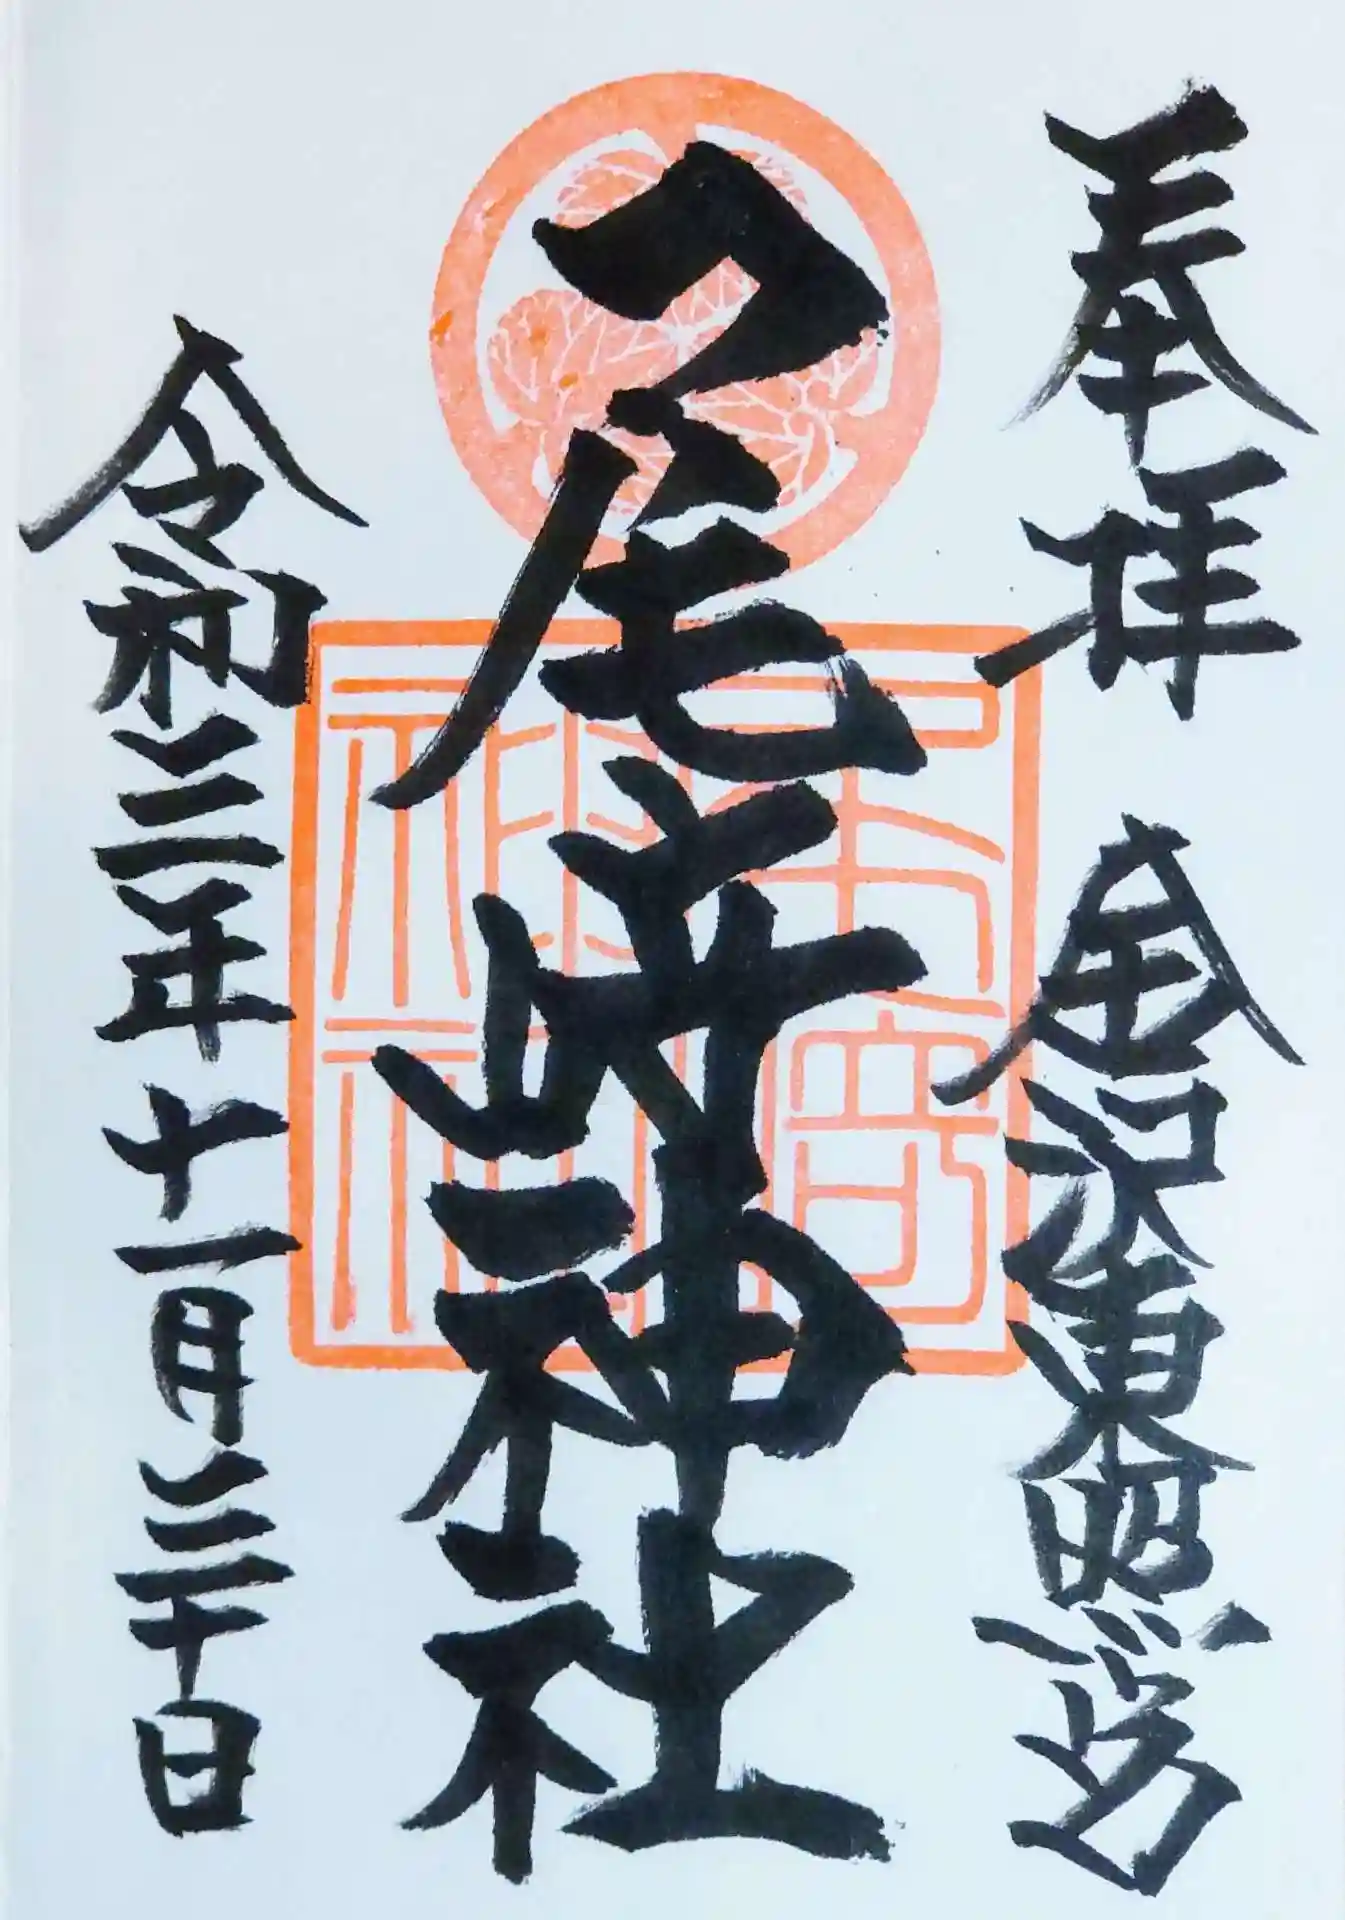 奉拝 金沢東照宮
尾崎神社
令和三年十一月三十日
尾崎神社